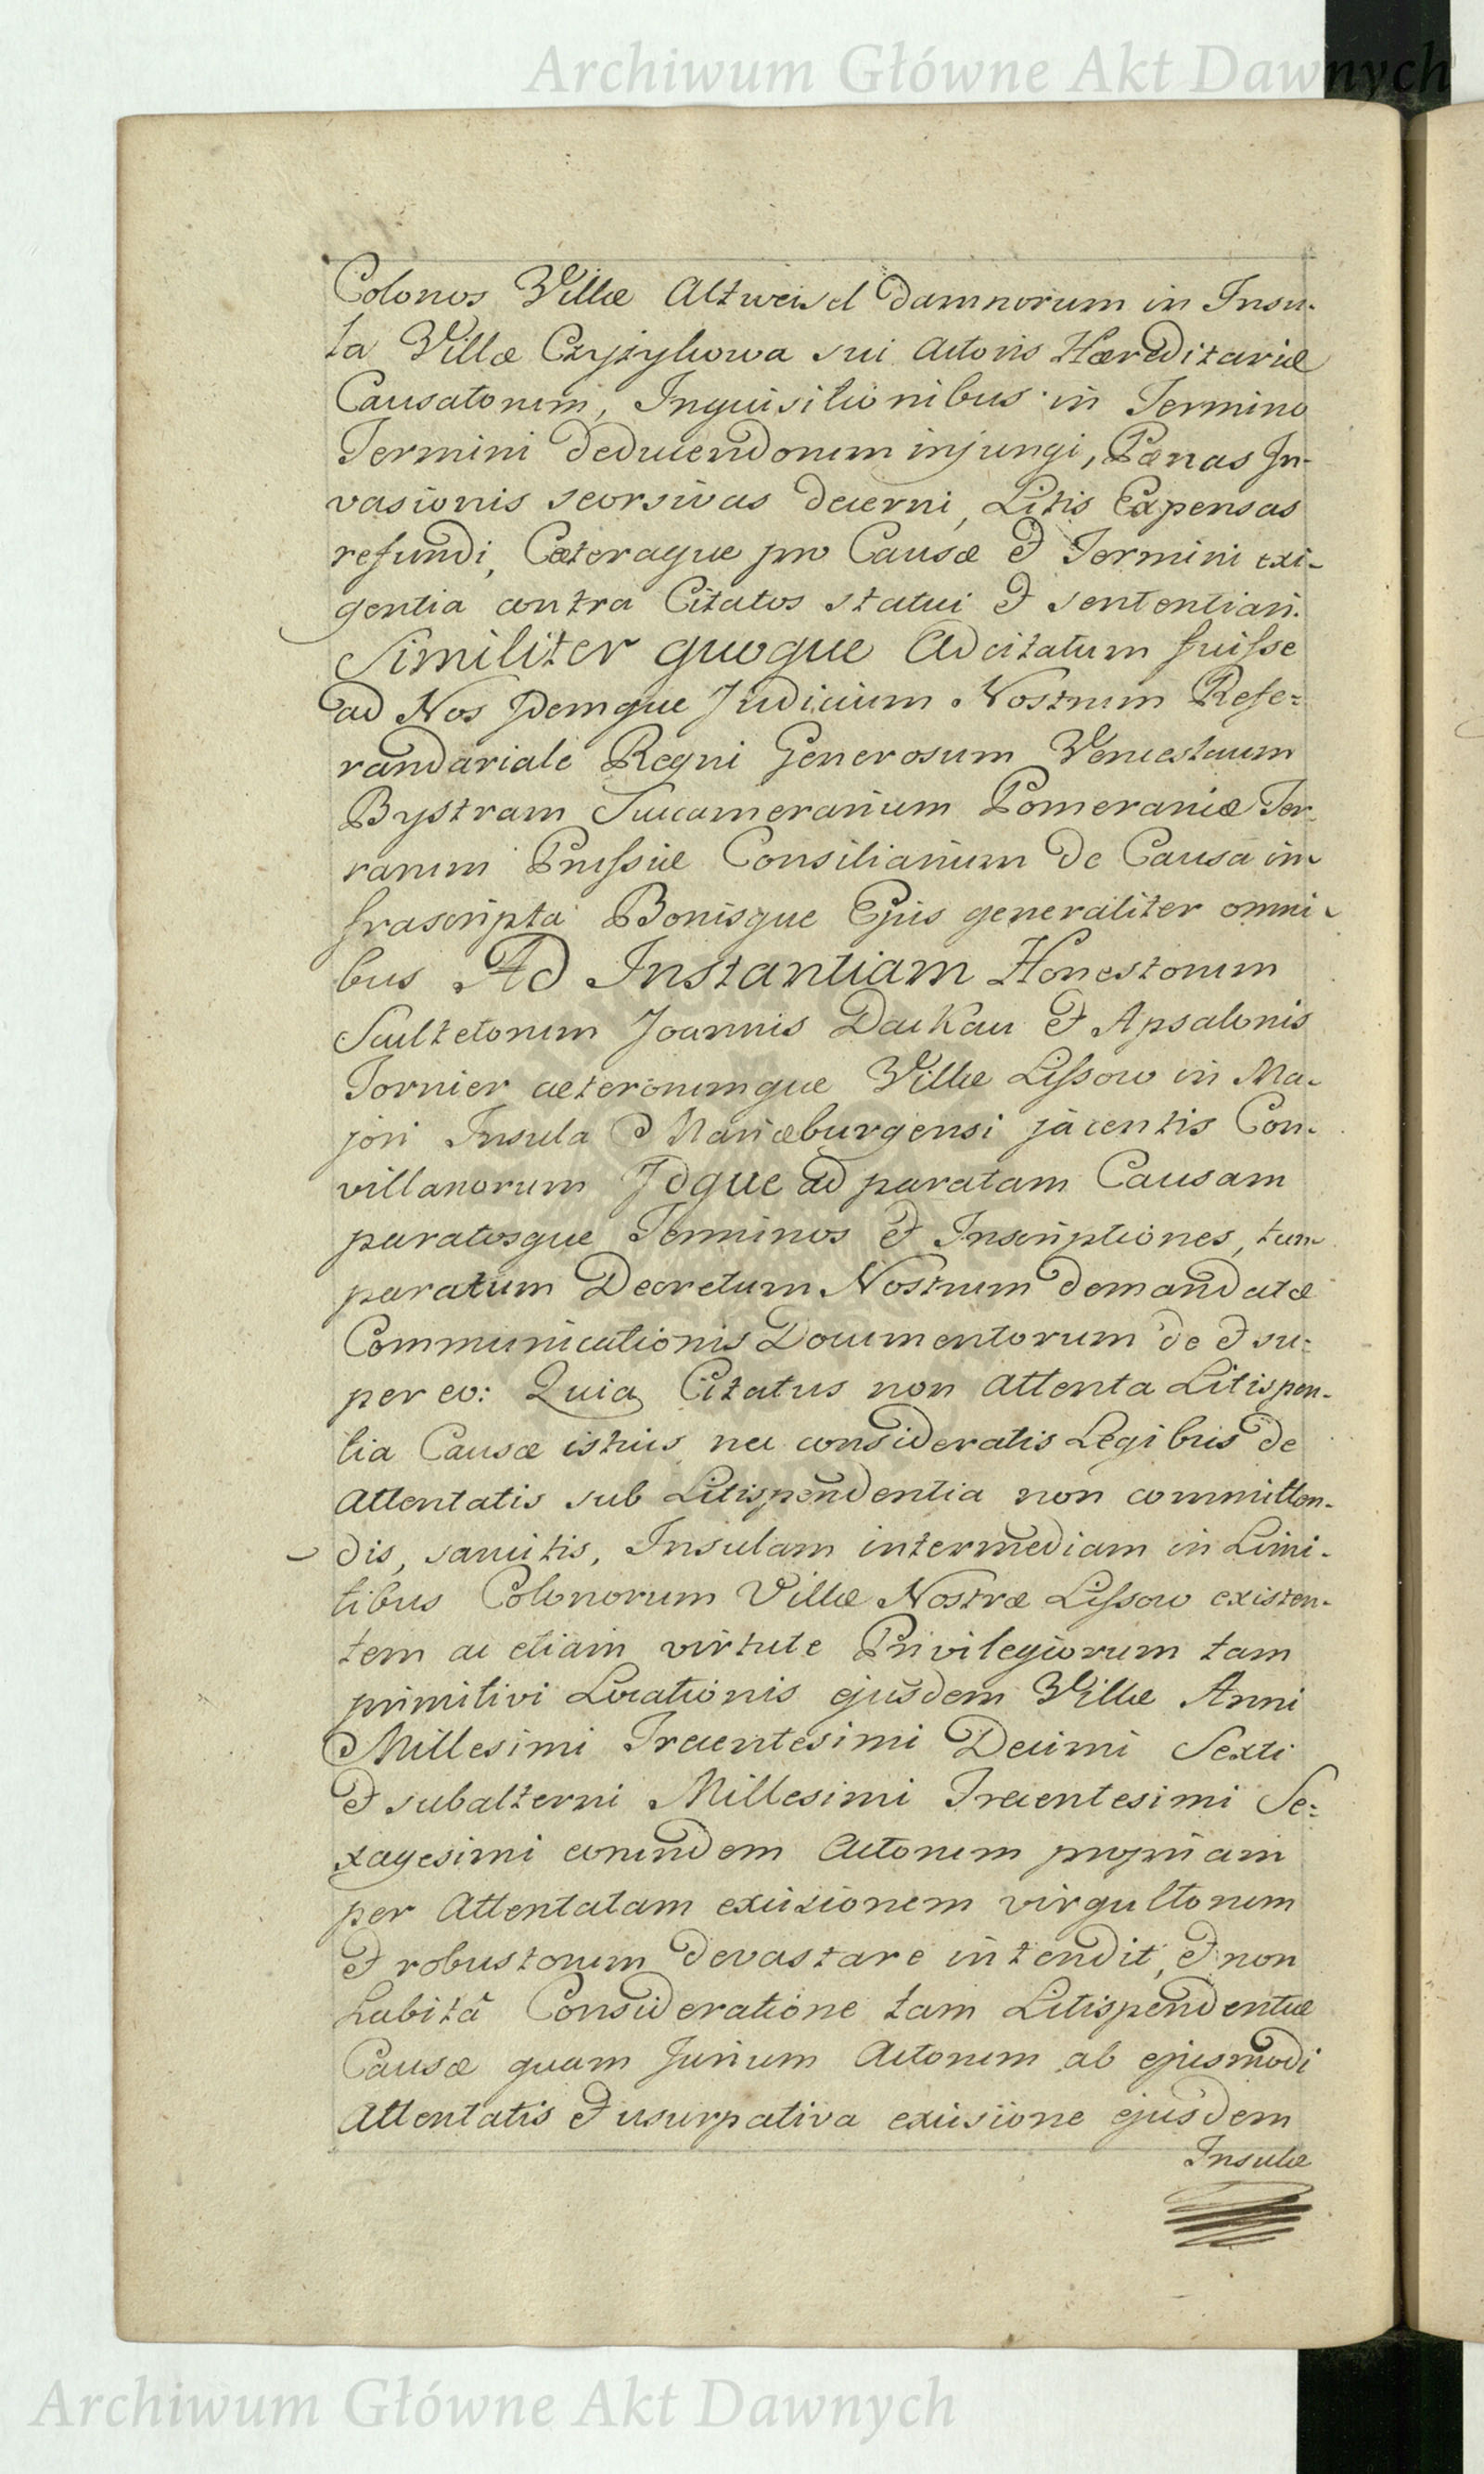 Archiwum Główne Akt Dawnych
Colonos Villæ Altweisel damnorum in Insu-
la Villæ Czyżykowa sui Actoris Hæreditariæ
Causatorum, Inquisitionibus in Termino
Termini deducendorum injungi, Pœnas In-
vasionis seorsivas decerni, Litis Expensas
refundi, Cæteraque pro Causæ & Termini exi-
gentia contra Citatos statui & sententiari.
Similiter quoque Adcitatum fuisse
ad Nos Idemque Judicium Nostrum Refe=
randariale Regni Generosum Venceslaum
Bystram Succamerarium Pomeraniæ Ter-
rarum Prussiæ Consiliarium de Causa in-
frascripta Bonisque Ejus generaliter omni-
bus Ad Instantiam Honestorum
Scultetorum Joannis Dackau & Apsalonis
Tornier cæterorumque Villæ Lissow in Ma-
jori Insula Mariæburgensi jacentis Con-
villanorum Idque ad paratam Causam
paratosque Terminos & Inscriptiones, tum
paratum Decretum Nostrum demandatæ
Communicationis Documentorum de & su=
per eo: Quia Citatus non attenta Litispen-
tia Causæ istius nec consideratis Legibus de
attentatis sub Litispendentia non committen-
dis, sancitis, Insulam intermediam in Limi-
tibus Colonorum Villæ Nostræ Lissow existen-
tem ac etiam virtute Privilegiorum tam
primitivi Locationis ejusdem Villæ Anni
Millesimi Trecentesimi Decimi Sexti
& subalterni Millesimi Trecentesimi Se=
xagesimi eorundem Actorum propriam
per attentatam excisionem virgultorum
& robustorum devastare intendit, & non
habitâ Consideratione tam Litispendentiæ
Causæ quam Jurium Actorum ab ejusmodi
attentatis & usurpativa excisione ejusdem
Insulæ
Archiwum Główne Akt Dawnych